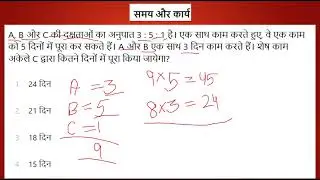 समय और कार्य
A, B और C की दक्षताओं का अनुपात 3 : 5 : 1 है। एक साथ काम करते हुए, वे एक काम
को 5 दिनों में पूरा कर सकते हैं। A और B एक साथ 3 दिन काम करते हैं। शेष काम
अकेले C द्वारा कितने दिनों में पूरा किया जायेगा?
1. 24 दिन
2. 21 दिन
3. 18 दिन
4. 15 दिन
A = 3
B = 5
C = 1
9
9 x 5 = 45
8 x 3 = 24